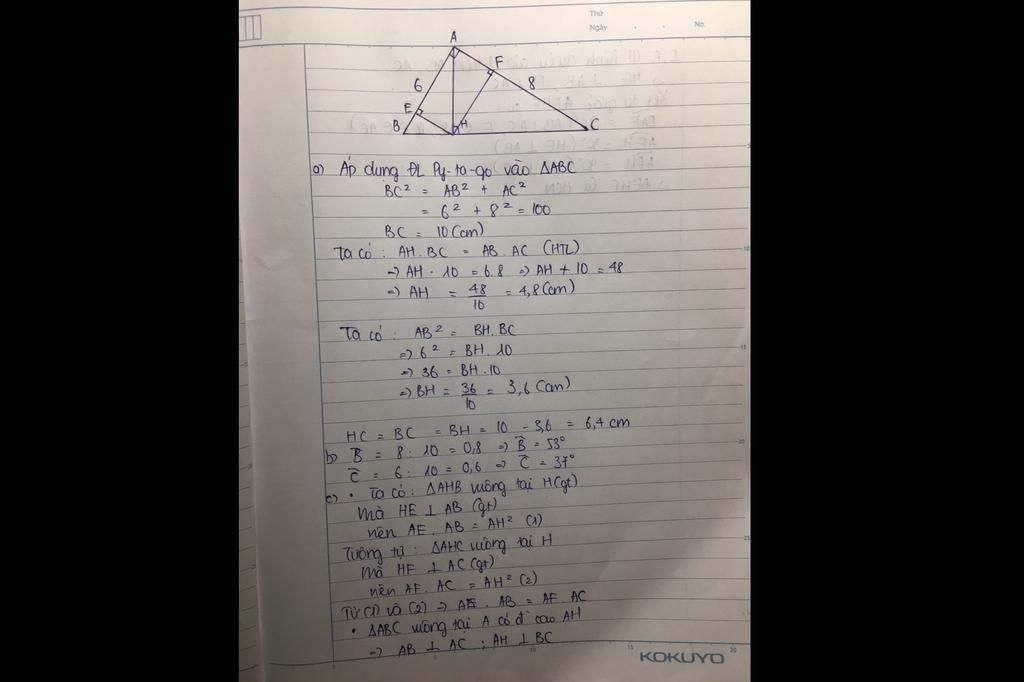 Thứ
Ngày . . No.
A
F
6
8
E
B
H
C
a) Áp dụng ĐL Py-ta-go vào ΔABC
BC² = AB² + AC²
= 6² + 8² = 100
BC = 10 (cm)
Ta có : AH. BC = AB. AC (HTL)
=> AH . 10 = 6.8 => AH + 10 = 48
=> AH = 48/10 = 4,8 (cm)
Ta có : AB² = BH. BC
=> 6² = BH. 10
=> 36 = BH. 10
=> BH = 36/10 = 3,6 (cm)
HC = BC = BH = 10 - 3,6 = 6,4 cm
b) B̂ = 8 : 10 = 0,8 => B̂ = 53°
Ĉ = 6 : 10 = 0,6 => Ĉ = 37°
c) • Ta có : ΔAHB vuông tại H (gt)
Mà HE ⊥ AB (gt)
nên AE . AB = AH² (1)
Tương tự : ΔAHC vuông tại H
Mà HF ⊥ AC (gt)
nên AF. AC = AH² (2)
Từ (1) và (2) => AE . AB = AF. AC
• ΔABC vuông tại A có đ̀ cao AH
=> AB ⊥ AC ; AH ⊥ BC
KOKUYO